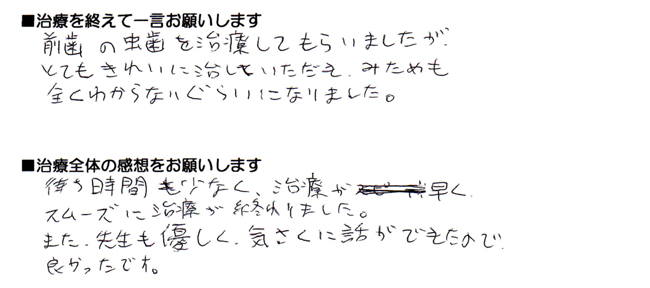 ■治療を終えて一言お願いします
前歯の虫歯を治療してもらいましたが、
とてもきれいに治していただき、みためも
全くわからないぐらいになりました。
■治療全体の感想をお願いします
待ち時間も少なく、治療が早く、
スムーズに治療が終わりました。
また、先生も優しく、気さくに話ができたので、
良かったです。